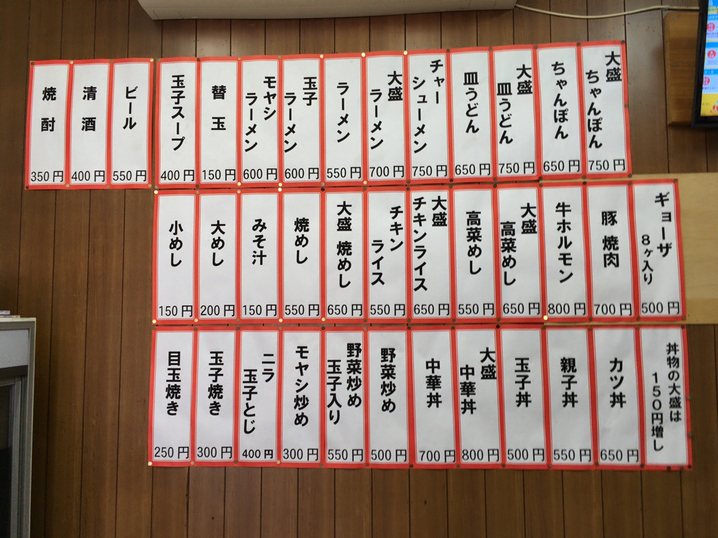 大盛
ちゃんぽん
750円
ちゃんぽん
650円
大盛
皿うどん
750円
皿うどん
650円
チャー
シューメン
750円
大盛
ラーメン
700円
ラーメン
550円
玉子
ラーメン
600円
モヤシ
ラーメン
600円
替玉
150円
玉子スープ
400円
ビール
550円
清酒
400円
焼酎
350円
ギョーザ
8ヶ入り
500円
豚焼肉
700円
牛ホルモン
800円
大盛
高菜めし
650円
高菜めし
550円
大盛
チキンライス
650円
チキン
ライス
550円
大盛 焼めし
650円
焼めし
550円
みそ汁
150円
大めし
200円
小めし
150円
丼物の大盛は
150円増し
カツ丼
650円
親子丼
550円
玉子丼
500円
大盛
中華丼
800円
中華丼
700円
野菜炒め
500円
野菜炒め
玉子入り
550円
モヤシ炒め
300円
ニラ
玉子とじ
400円
玉子焼き
300円
目玉焼き
250円